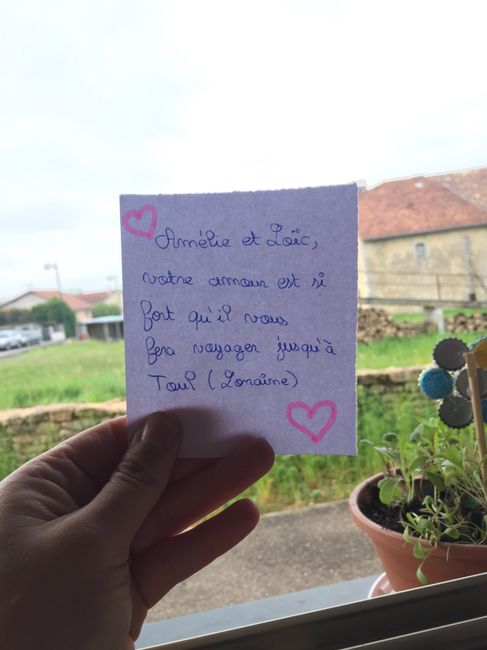 Amélie et Loïc,
votre amour est si
fort qu'il vous
fera voyager jusqu'à
Toul (Lorraine)